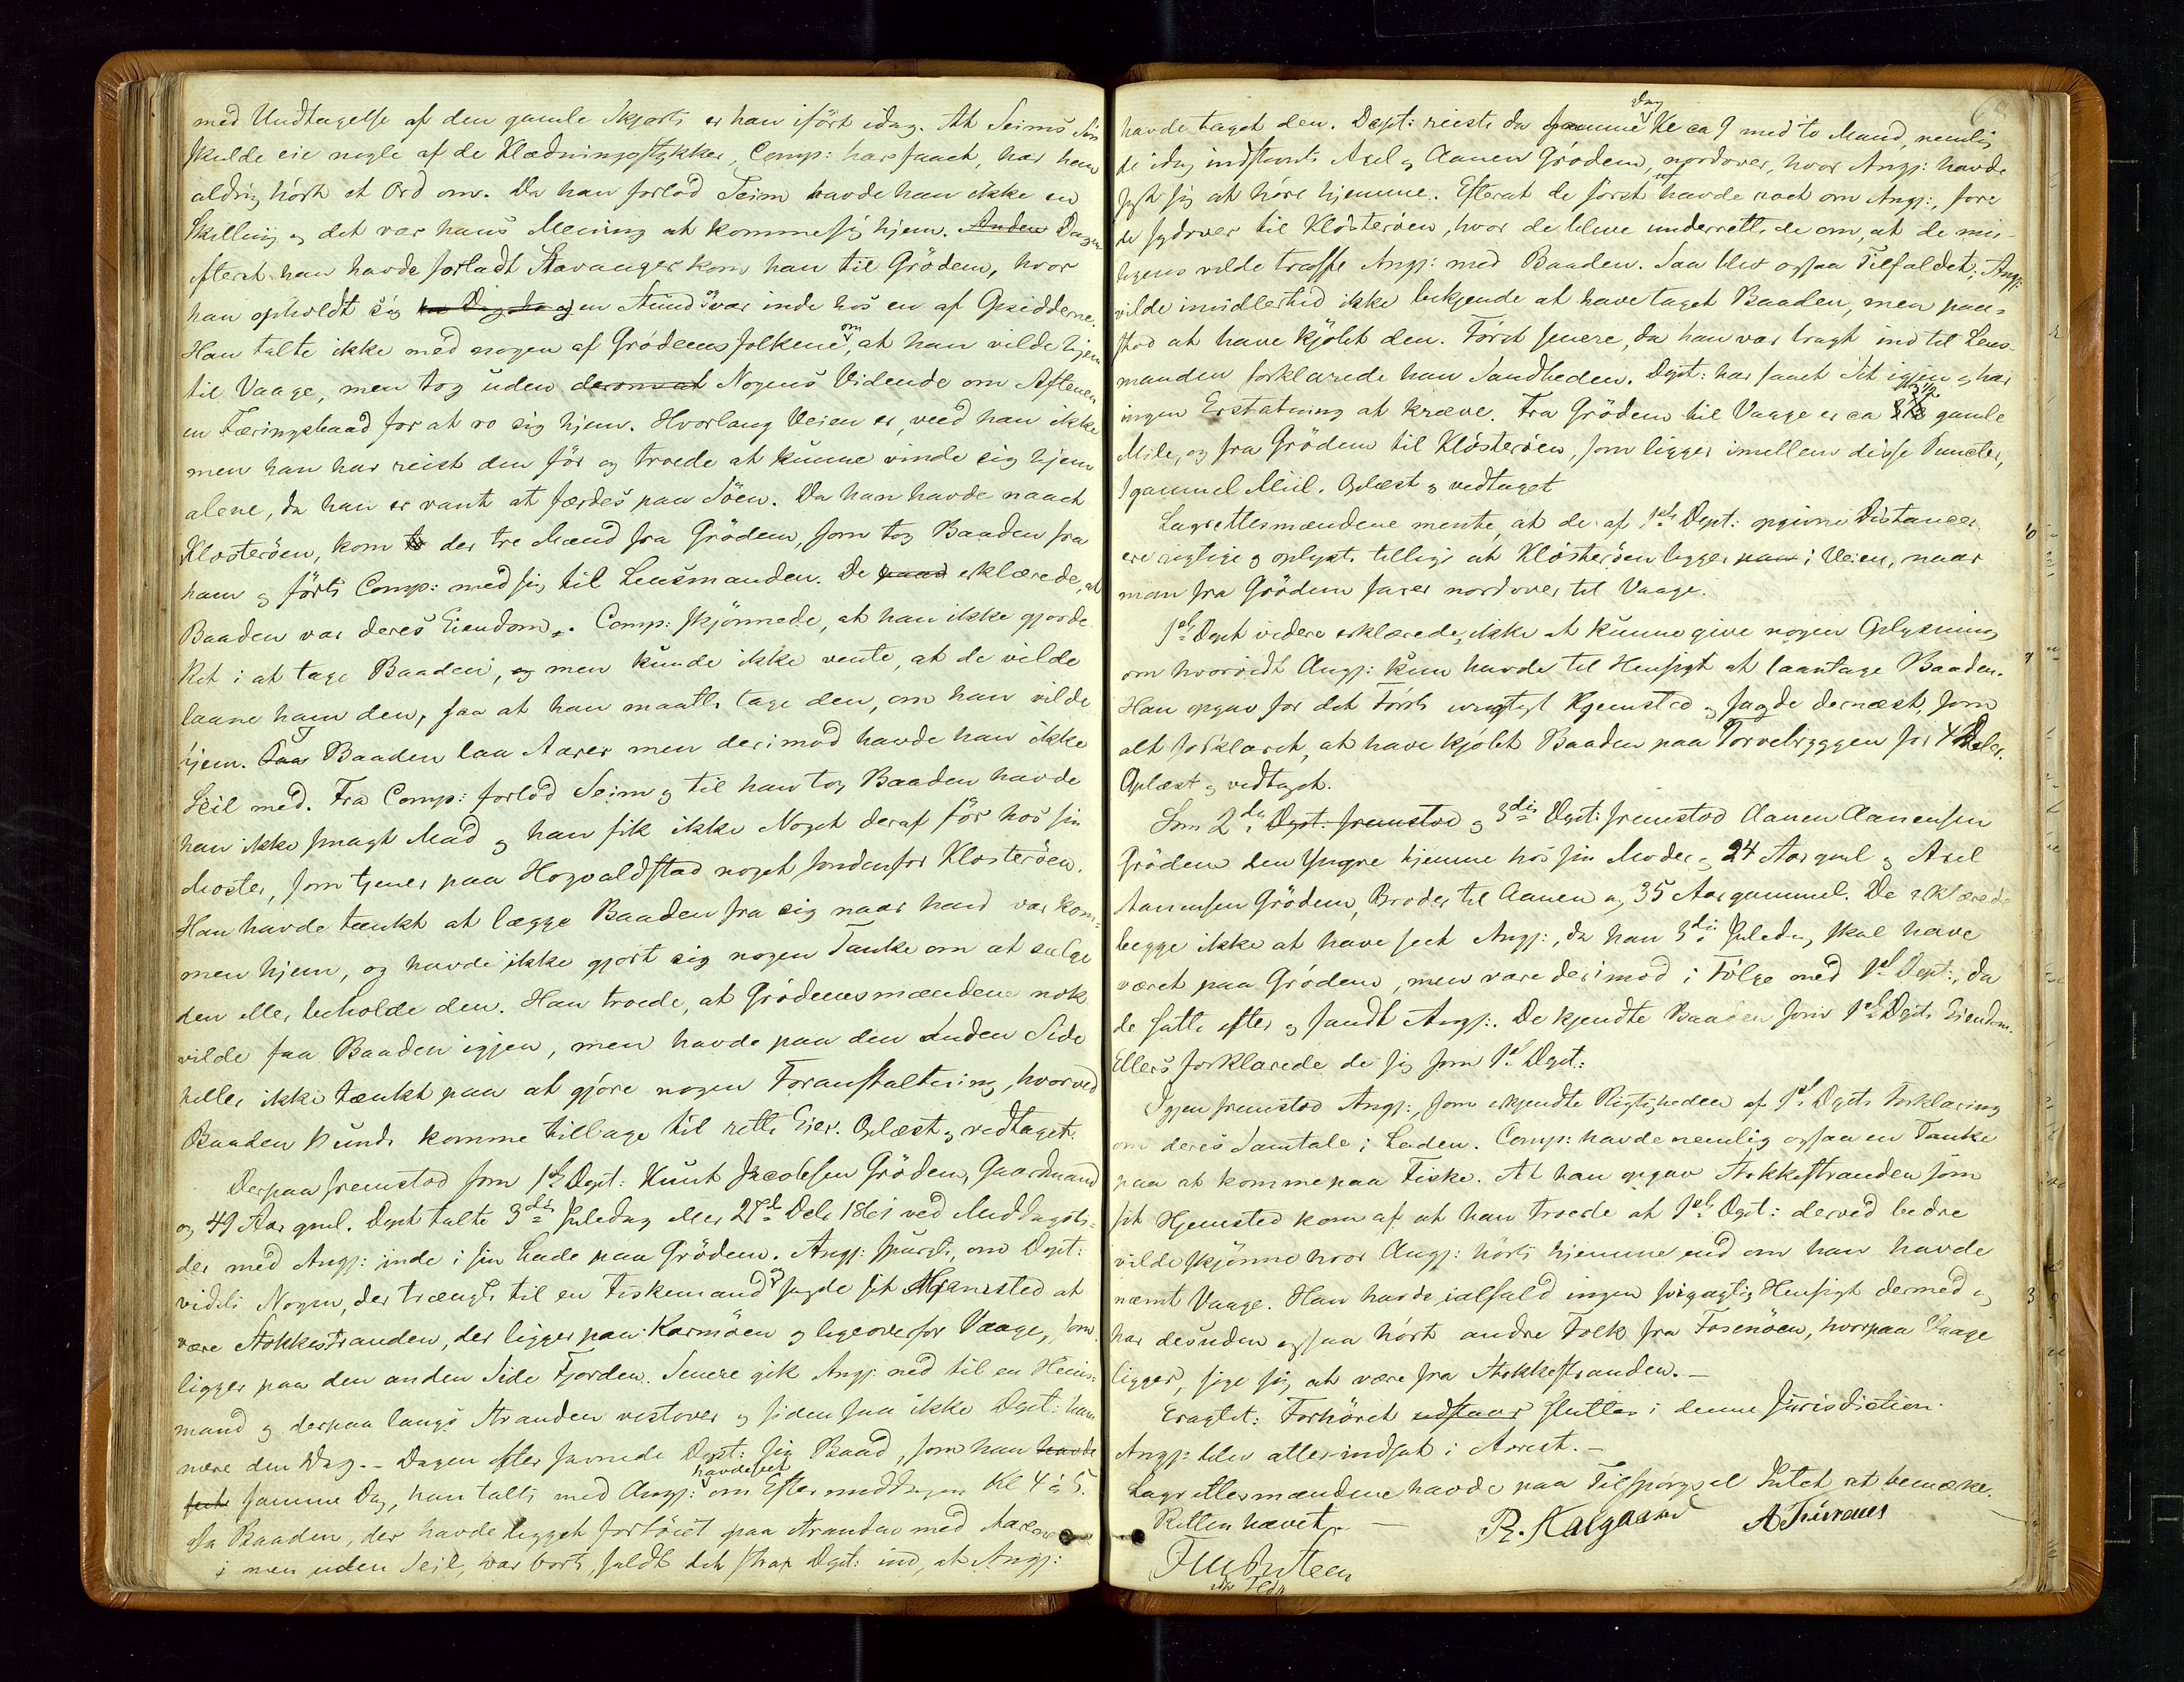 med Undtagelse af den gamle Skjorte er han iført idag. At Seims Søn
skulde eie nogle af de Klædningsstykker, Comp: har faaet, har han
aldrig hørt et Ord om. Da han forlod Seim havde han ikke en
Skilling og det var hans Mening at komme sig hjem. Anden Dagen
efterat han havde forladt Stavanger kom han til Grødem, hvor
han opholdt sig en Stund og var inde hos en af Opsidderne.
Han talte ikke med nogen af Grødemsfolkene om, at han vilde hjem
til Vaage, men tog uden derom at Nogens Vidende om Aftenen
en Færingsbaad for at ro sig hjem. Hvorlang Veien er, veed han ikke
men han har reist den før og troede at kunne vinde sig hjem
alene, da han er vant at færdes paa Søen. Da han havde naaet
Klosterøen, kom to der tre Mænd fra Grødem, som tog Baaden fra
ham og førte Comp: med sig til Lensmanden. De erklærede, at
Baaden var deres Eiendom. Comp: skjønnede, at han ikke gjorde
Ret i at tage Baaden, og men kunde ikke vente, at de vilde
laane ham den, saa at han maatte tage den, om han vilde
hjem. I Baaden laa Aarer men derimod havde han ikke
Seil med. Fra Comp: forlod Seim og til han tog Baaden havde
han ikke smagt Mad og han fik ikke Noget deraf før hos sin
Moster, som tjener paa Hogvaldstad noget søndenfor Klosterøen.
Han havde tænkt at lægge Baaden fra sig naar han var kom-
men hjem, og havde ikke gjort sig nogen Tanke om at sælge
den eller beholde den. Han troede, at Grødemsmændene nok
vilde faa Baaden igjen, men havde paa den Anden Side
heller ikke tænkt paa at gjøre nogen Foranstaltning, hvorved
Baaden kunde komme tilbage til rette Eier. Oplæst og vedtaget.
Derpaa fremstod som 1ste Dept: Knut Jacobsen Grødem, Gaardmand
og 49 Aar gml. Dept talte 3die Juledag eller 27de Dcbr 1861 ved Middagsti-
der med Angj: inde i sin Lade paa Grødem. Angj: spurgte, om Dept:
vidste Nogen, der trængte til en Fiskemand og sagde sit Hjemsted at
være Stokkestranden, der ligger paa Karmøen og ligeoverfor Vaage, som
ligger paa den anden Side Fjorden. Senere gik Angj. ned til en Huus-
mand og derpaa langs Stranden vestover og siden saa ikke Dept: ham
mere den Dag. - Dagen efter savnede Dept: sin Baad, som han havde
seet samme Dag, han talte med Angj: havde seet om Eftermiddagen Kl 4 à 5.
Da Baaden, der havde ligget fortøiet paa Stranden med Aarene
i men uden Seil, var borte, faldt det strax Dept: ind, at Angj:
68
havde taget den. Dept: reiste da samme Dag Kl ca 9 med to Mand, nemlig
de idag indstevnte Axel og Aanen Grødem, nordover, hvor Angj: havde
sagt sig at høre hjemme. Efterat de først havde roet om Angj:, fore
de sydover til Klosterøen, hvor de bleve underrettede om, at de mu-
ligens vilde træffe Angj: med Baaden. Saa blev ogsaa Tilfældet; Angj:
vilde imidlertid ikke bekjende at have taget Baaden, men paa-
stod at have kjøbt den. Først senere, da han var bragt ind til Lens-
manden forklarede han Sandheden. Dept: har faaet Sit igjen og har
ingen Erstatning at kræve. Fra Grødem til Vaage er ca gamle
Mile, og fra Grødem til Klosterøen, som ligger imellem disse Puncter,
1 gammel Miil. Oplæst og vedtaget
Lagrettesmændene mente, at de af 1ste Dept: opgivne Distancer
ere rigtige og oplyste tillige at Klosterøen ligger paa i Veien, naar
man fra Grødem farer nordover til Vaage.
1ste Dept videre erklærede, ikke at kunne give nogen Oplysning
om hvorvidt Angj: kun havde til Hensigt at laantage Baaden.
Han opgav for det Første urigtigt Hjemsted og sagde dernæst, som
alt forklaret, at have kjøbt Baaden paa Torvebryggen for 4 Daler.
Oplæst og vedtaget.
Som 2det Dept: fremstod og 3die Dept: fremstod Aanen Aanensen
Grødem den Yngre hjemme hos sin Moder og 24 Aar gml og Axel
Aanensen Grødem, Broder til Aanen og 35 Aar gammel. De erklærede
begge ikke at have seet Angj:, da han 3die Juledag skal have
været paa Grødem, men vare derimod i Følge med 1ste Dept:, da
de satte efter og fandt Angj:. De kjendte Baaden som 1ste Depts Eiendom.
Ellers forklarede de sig som 1ste Dept:
Igjen fremstod Angj:, som erkjendte Rigtigheden af 1ste Depts Forklaring
om deres Samtale i Laden. Comp: havde nemlig ogsaa en Tanke
paa at komme paa Fiske. At han opgav Stokkestranden som
sit Hjemsted kom af at han troede at 1ste Dept: derved bedre
vilde skjønne hvor Angj: hørte hjemme end om han havde
nævnt Vaage. Han havde ialfald ingen svigagtig Hensigt dermed og
har desuden ogsaa hørt andre Folk fra Fosenøen, hvorpaa Vaage
ligger, sige sig at være fra Stokkestranden. -
Eragtet: Forhøret udstaar sluttes i denne Jurisdiction.
Angj: blev atter indsat i Arrest. -
Lagrettesmændene havde paa Tilspørgsel Intet at bemærke.
Retten hævet. -
R. Kalgaard